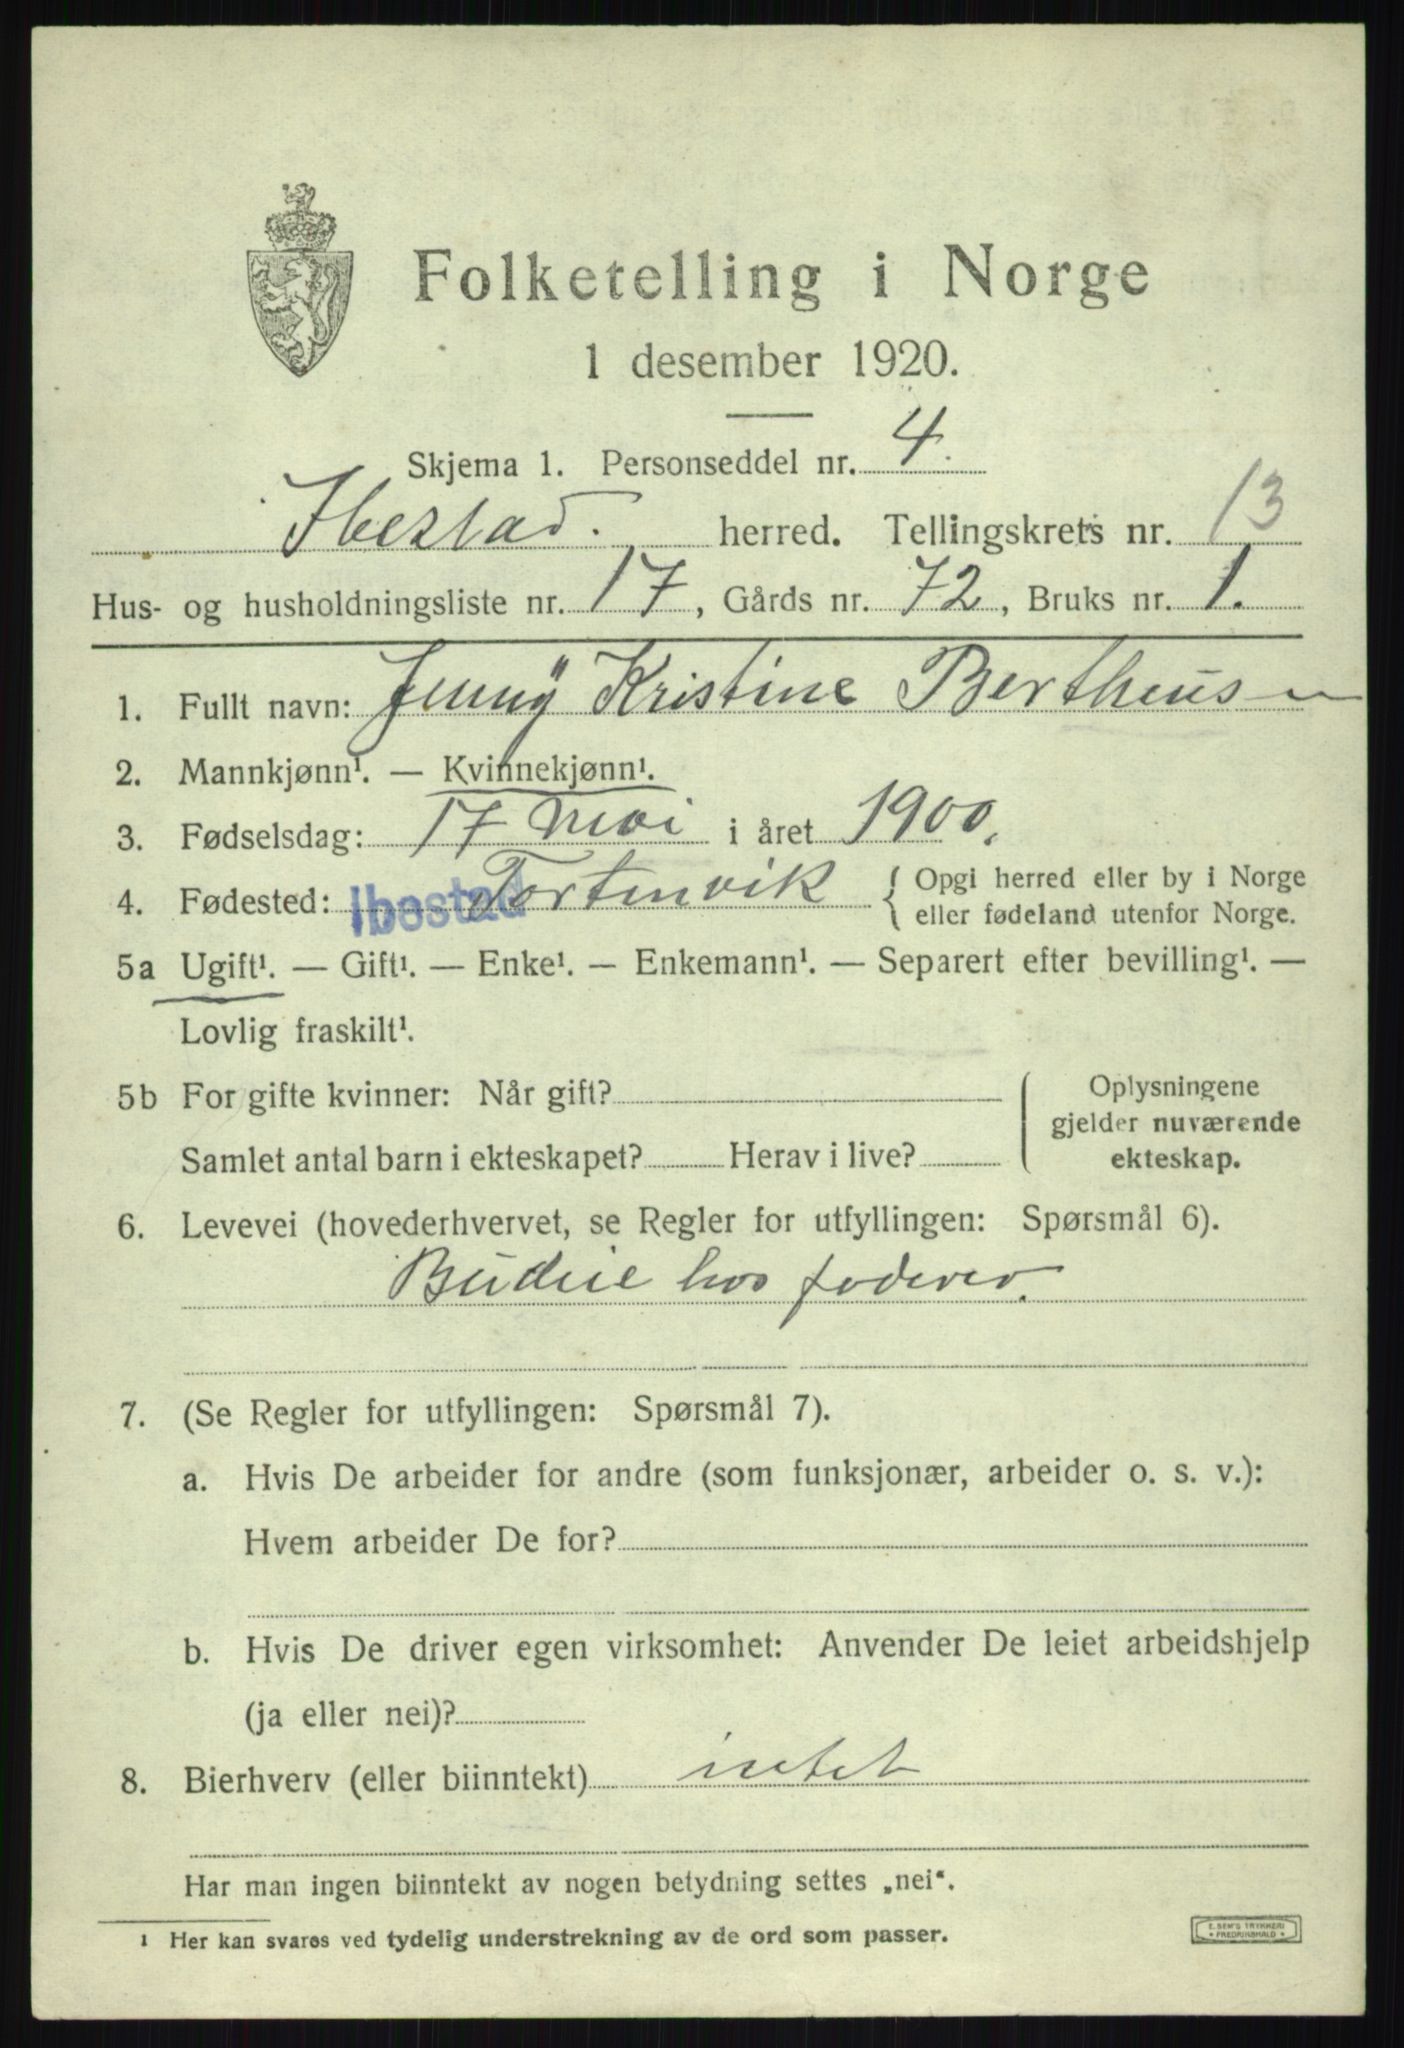 Folketelling i Norge
1 desember 1920.
Skjema 1. Personseddel nr. 4.
Ibestad. herred. Tellingskrets nr. 13
Hus- og husholdningsliste nr. 17, Gårds nr. 72, Bruks nr. 1.
1. Fullt navn: Jenny Kristine Bertheusen
2. Mannkjønn¹. — Kvinnekjønn¹.
3. Fødselsdag: 17 mai i året 1900.
4. Fødested: Ibestad Tortenvik { Opgi herred eller by i Norge
eller fødeland utenfor Norge.
5a Ugift¹. — Gift¹. — Enke¹. — Enkemann¹. — Separert efter bevilling¹. —
Lovlig fraskilt¹.
5b For gifte kvinner: Når gift?
Samlet antal barn i ekteskapet? Herav i live?
Oplysningene
gjelder nuværende
ekteskap.
6. Levevei (hovederhvervet, se Regler for utfyllingen: Spørsmål 6).
Budeie hos
7. (Se Regler for utfyllingen: Spørsmål 7).
a. Hvis De arbeider for andre (som funksjonær, arbeider o. s. v.):
Hvem arbeider De for?
b. Hvis De driver egen virksomhet: Anvender De leiet arbeidshjelp
(ja eller nei)?
8. Bierhverv (eller biinntekt) intet
Har man ingen biinntekt av nogen betydning settes „nei“.
¹ Her kan svares ved tydelig understrekning av de ord som passer.
E. SEM'S TRYKKERI
FREDRIKSHALD